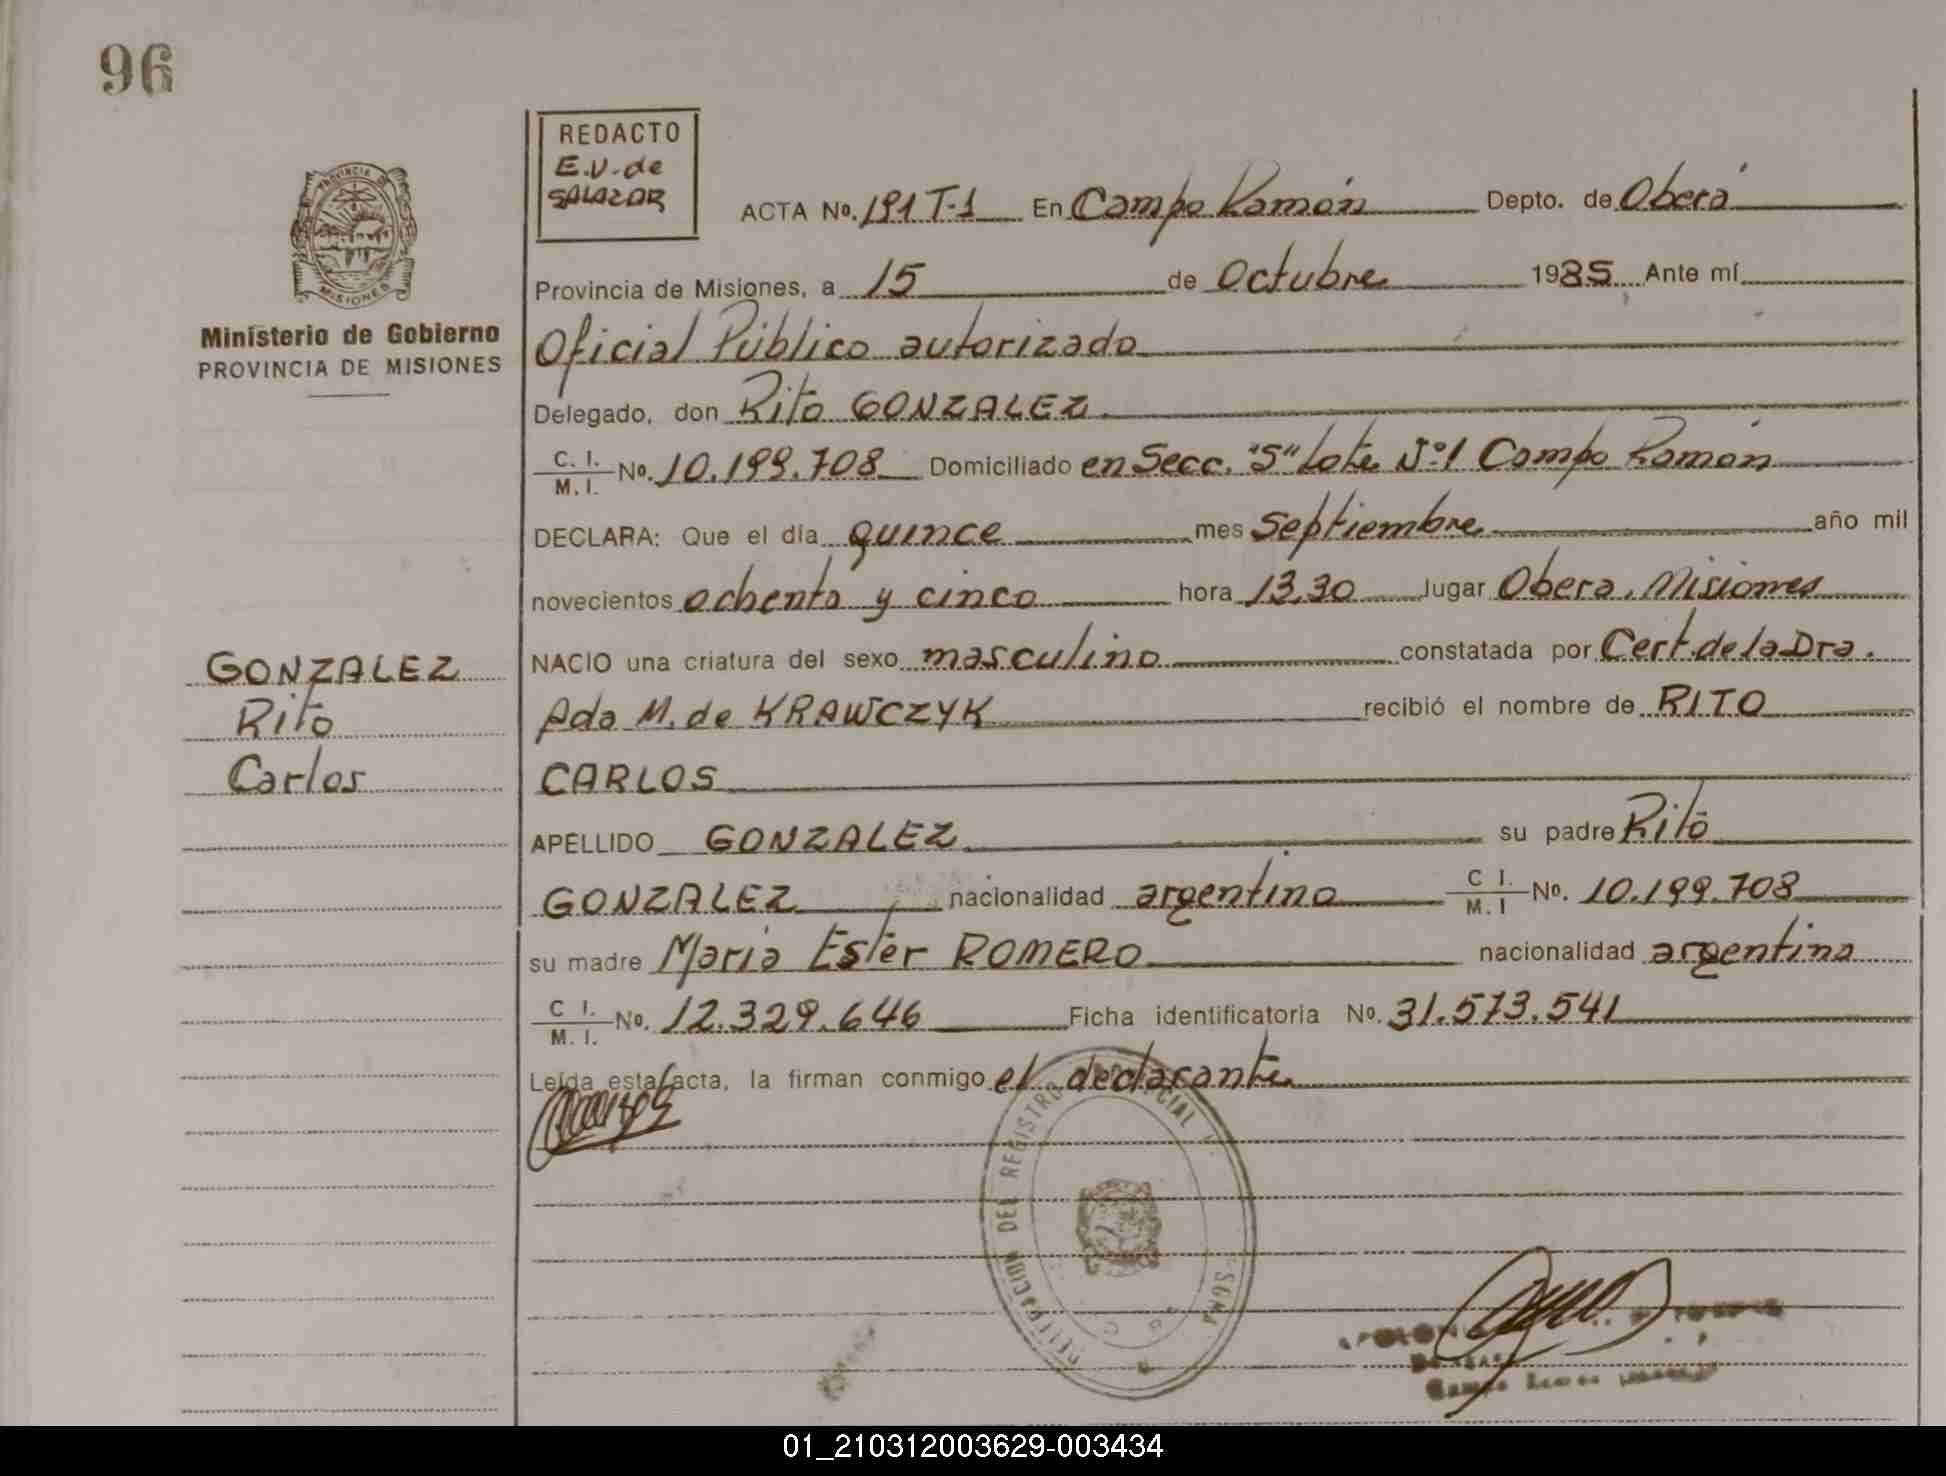 96
REDACTO
E.V. de
SALAZAR
ACTA No. 191 T-1 En Campo Ramón Depto. de Oberá
PROVINCIA DE
MISIONES
Provincia de Misiones, a 15 de Octubre 1985 Ante mí
Ministerio de Gobierno
PROVINCIA DE MISIONES
Oficial Público autorizado
Delegado, don Rito GONZALEZ
C. I.
M. I. No. 10.199.708 Domiciliado en Secc. "5" Lote Nº1 Campo Ramón
DECLARA: Que el día quince mes septiembre año mil
novecientos ochenta y cinco hora 13,30 lugar Obera, Misiones
NACIO una criatura del sexo masculino constatada por Cert. de la Dra.
Ada M. de KRAWCZYK recibió el nombre de RITO
CARLOS
GONZALEZ
Rito
Carlos
APELLIDO GONZALEZ su padre Rito
GONZALEZ nacionalidad argentina C I.
M. I No. 10.199.708
su madre Maria Ester ROMERO nacionalidad argentina
C I.
M. I. No. 12.329.646 Ficha identificatoria No. 31.573.541
Leída esta acta, la firman conmigo el declarante
DEL REGISTRO
01_210312003629-003434